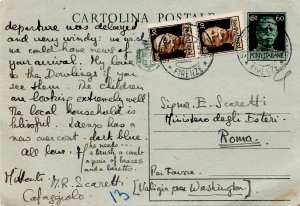 CARTOLINA POSTALE
departure was delayed
and very windy. us [wish]
we could have news of
your arrival. My love
to the Dowlings if you
see them. The children
are lasting extremely well
The local household is
blissful. Idenzo has a
new over coat - dark blue
all love.
he needs -
a brush a comb
a pair of braces
and a beretto.
Mittente M.R. Scaretti
Cafaggiolo
13
FIRENZE
60
POSTE ITALIANE
Signa. E. Scaretti
Ministero degli Esteri
Roma.
Per Favore
[Valigia per Washington]